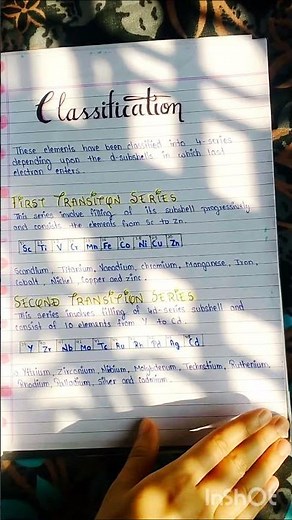 Classification
These elements have been classified into 4-series
depending upon the d-subshells in which last
electron enters.
FIRST TRANSITON SERIES
This series involve filling of its subshell progressively
and consists the elements from Sc to Zn.
Sc Ti V Cr Mn Fe Co Ni Cu Zn
Scandium, Titanium, Vanadium, chromium, Manganese, Iron,
Cobalt, Nickel, Copper and zinc.
SECOND TRANSITION SERIES
This series involve filling of 4d-series subshell and
consist of 10 elements from Y to Cd.
Y Zr Nb Mo Tc Ru Rh Pd Ag Cd
Yttrium, Zirconium, Niobium, Molybdenum, Technetium, Ruthenium,
Rhodium, Palladium, Silver and Cadmium.
InShOt